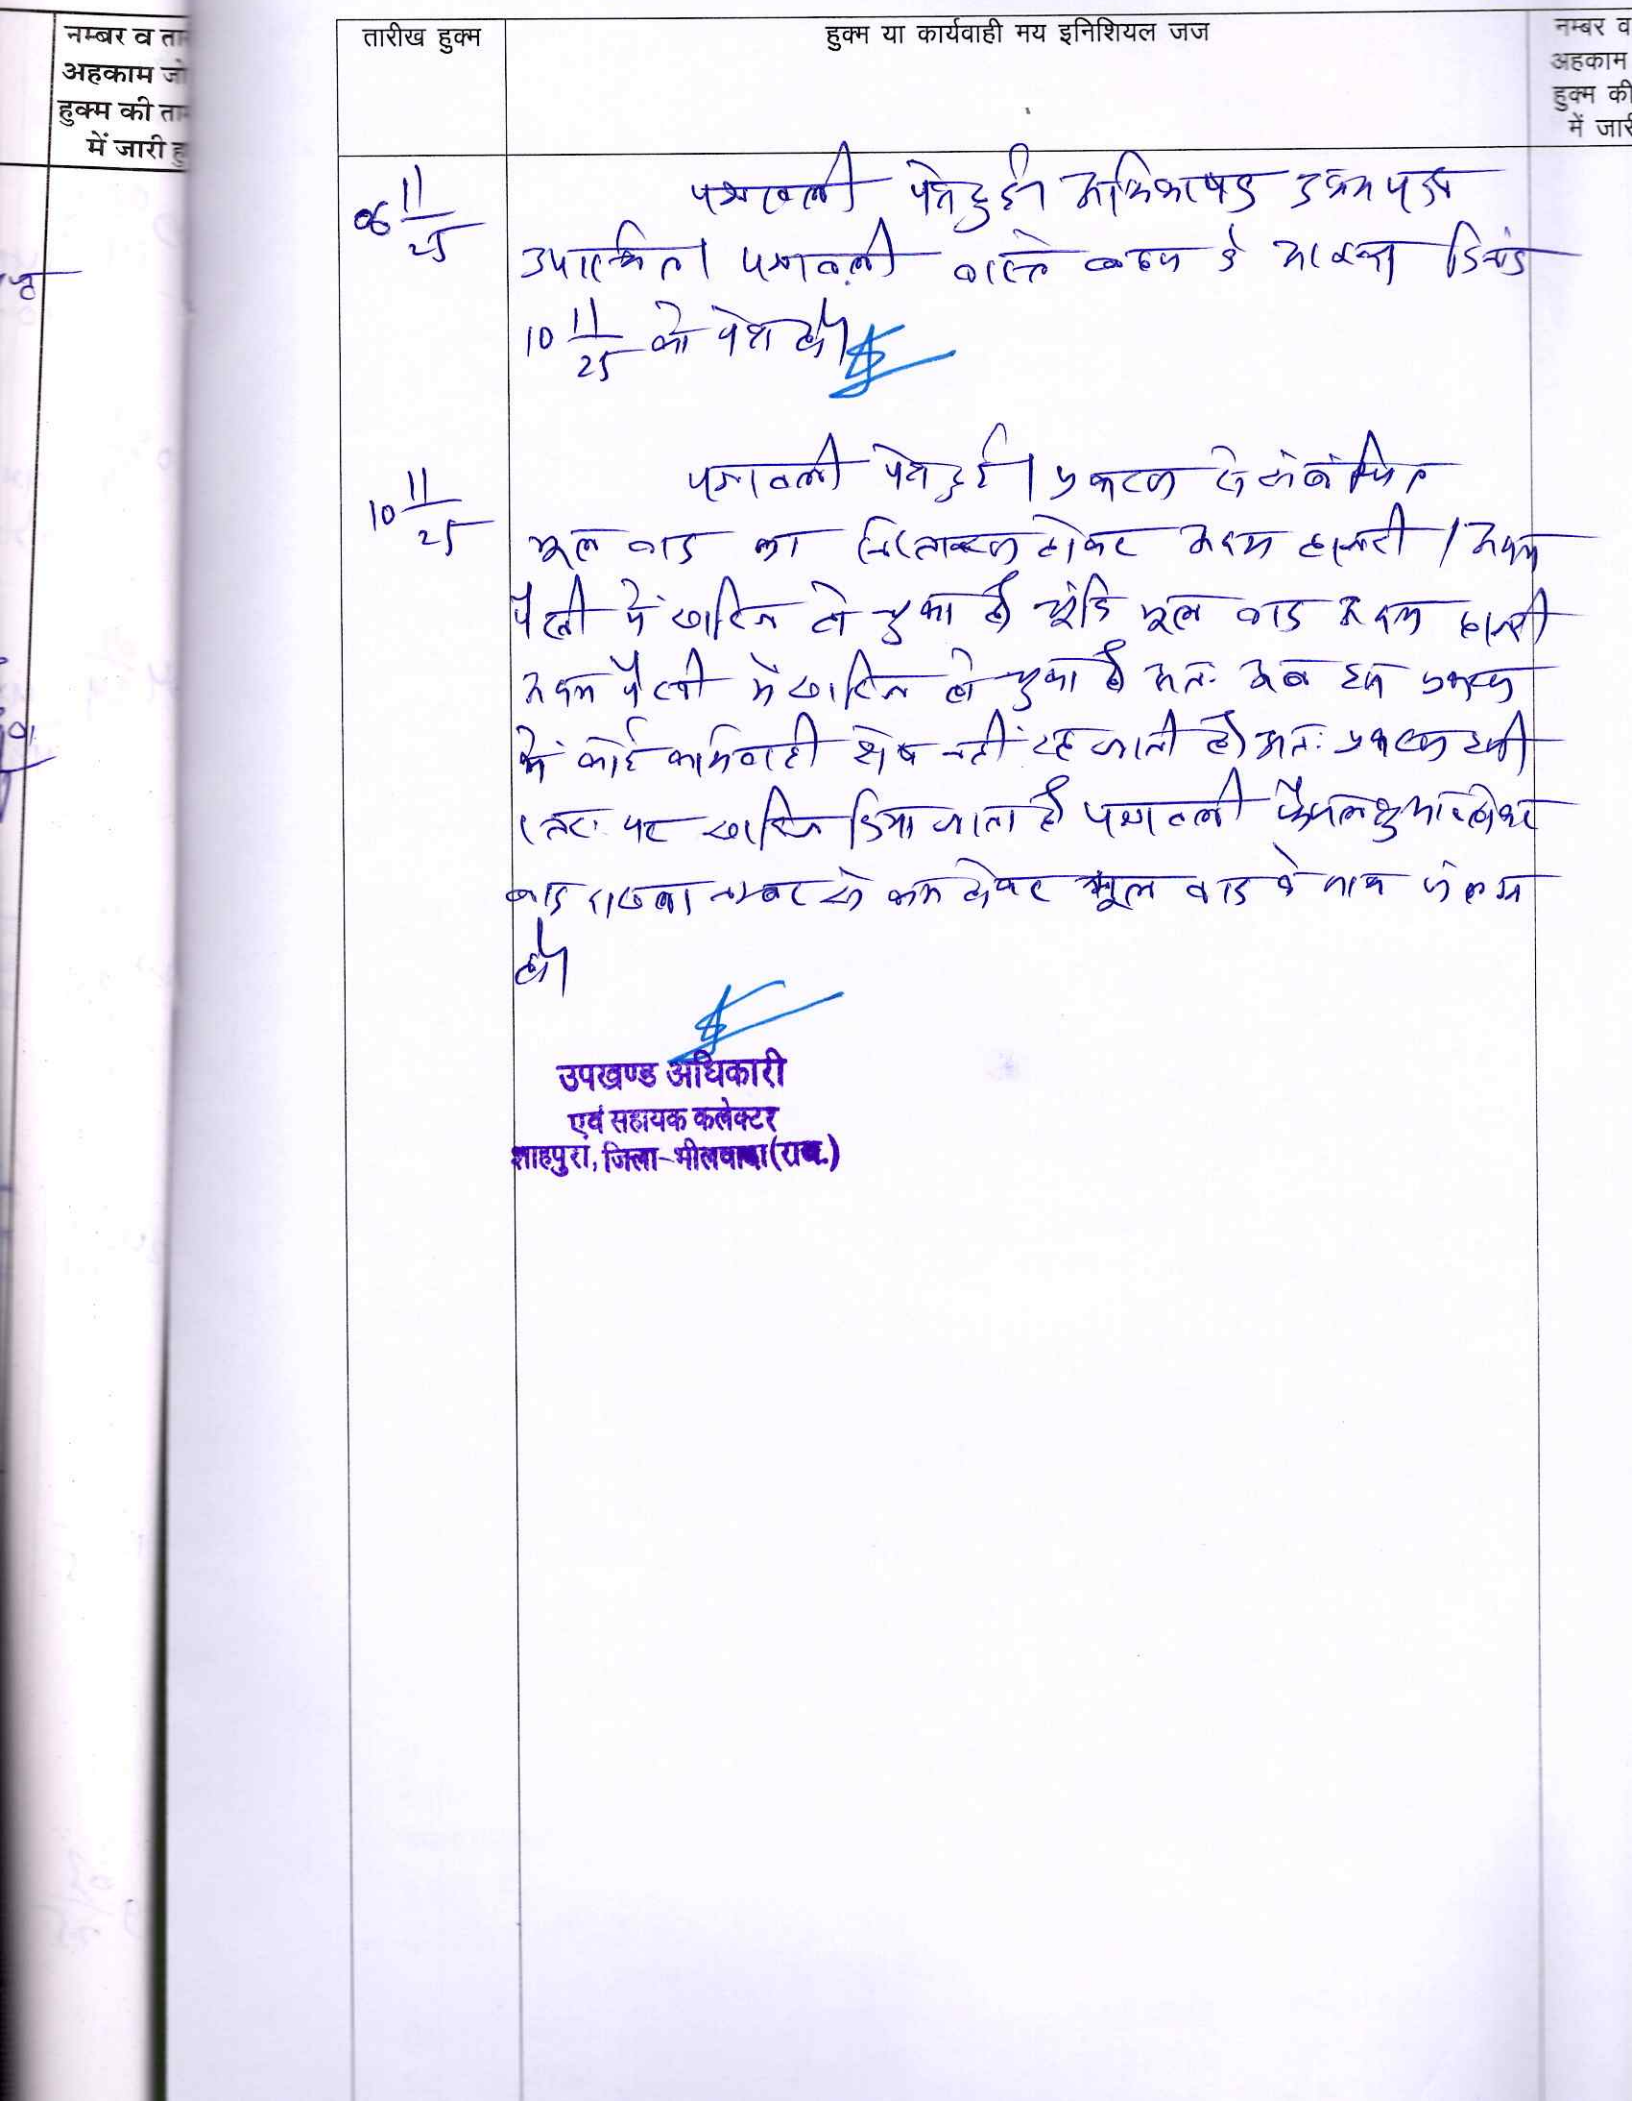 नम्बर व ता
अहकाम जो
हुक्म की ता
में जारी हु
तारीख हुक्म
हुक्म या कार्यवाही मय इनिशियल जज
नम्बर व
अहकाम
हुक्म की
में जारी
06 11/25
पत्रावली पेश हुई। अभिभाषक उभय पक्ष
उपस्थित। पत्रावली वास्ते बहस के दिनांक
10 11/25 को पेश हो।
10 11/25
पत्रावली पेश हुई। प्रकरण से संबंधित
मूल वाद का निस्तारण होकर अदम हाजरी / अदम
पैरवी में खारिज हो चुका है चूंकि मूल वाद अदम हाजरी
अदम पैरवी में खारिज हो चुका है अतः अब इस प्रकरण
में कोई कार्यवाही शेष नहीं रह जाती है। अतः प्रकरण इसी
स्तर पर खारिज किया जाता है पत्रावली फैसल शुमार होकर
बाद नम्बर से कम होकर मूल वाद के साथ संलग्न
हो।
उपखण्ड अधिकारी
एवं सहायक कलेक्टर
शाहपुरा, जिला-भीलवाड़ा (राज.)